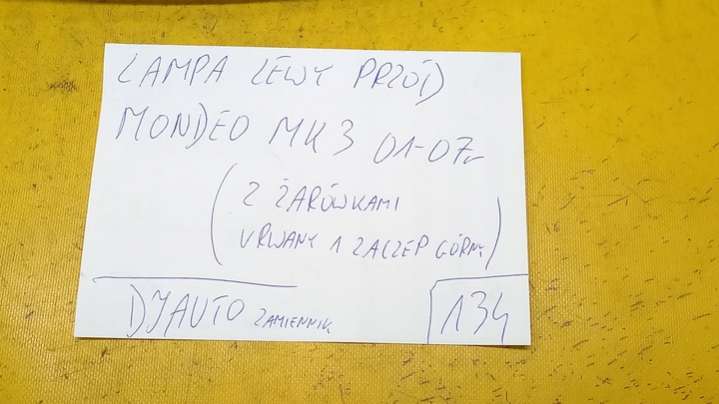 LAMPA LEWY PRZÓD
MONDEO MK3 01-07r
(Z ŻARÓWKAMI
URWANY 1 ZACZEP GÓRNY)
DJAUTO ZAMIENNIK
134